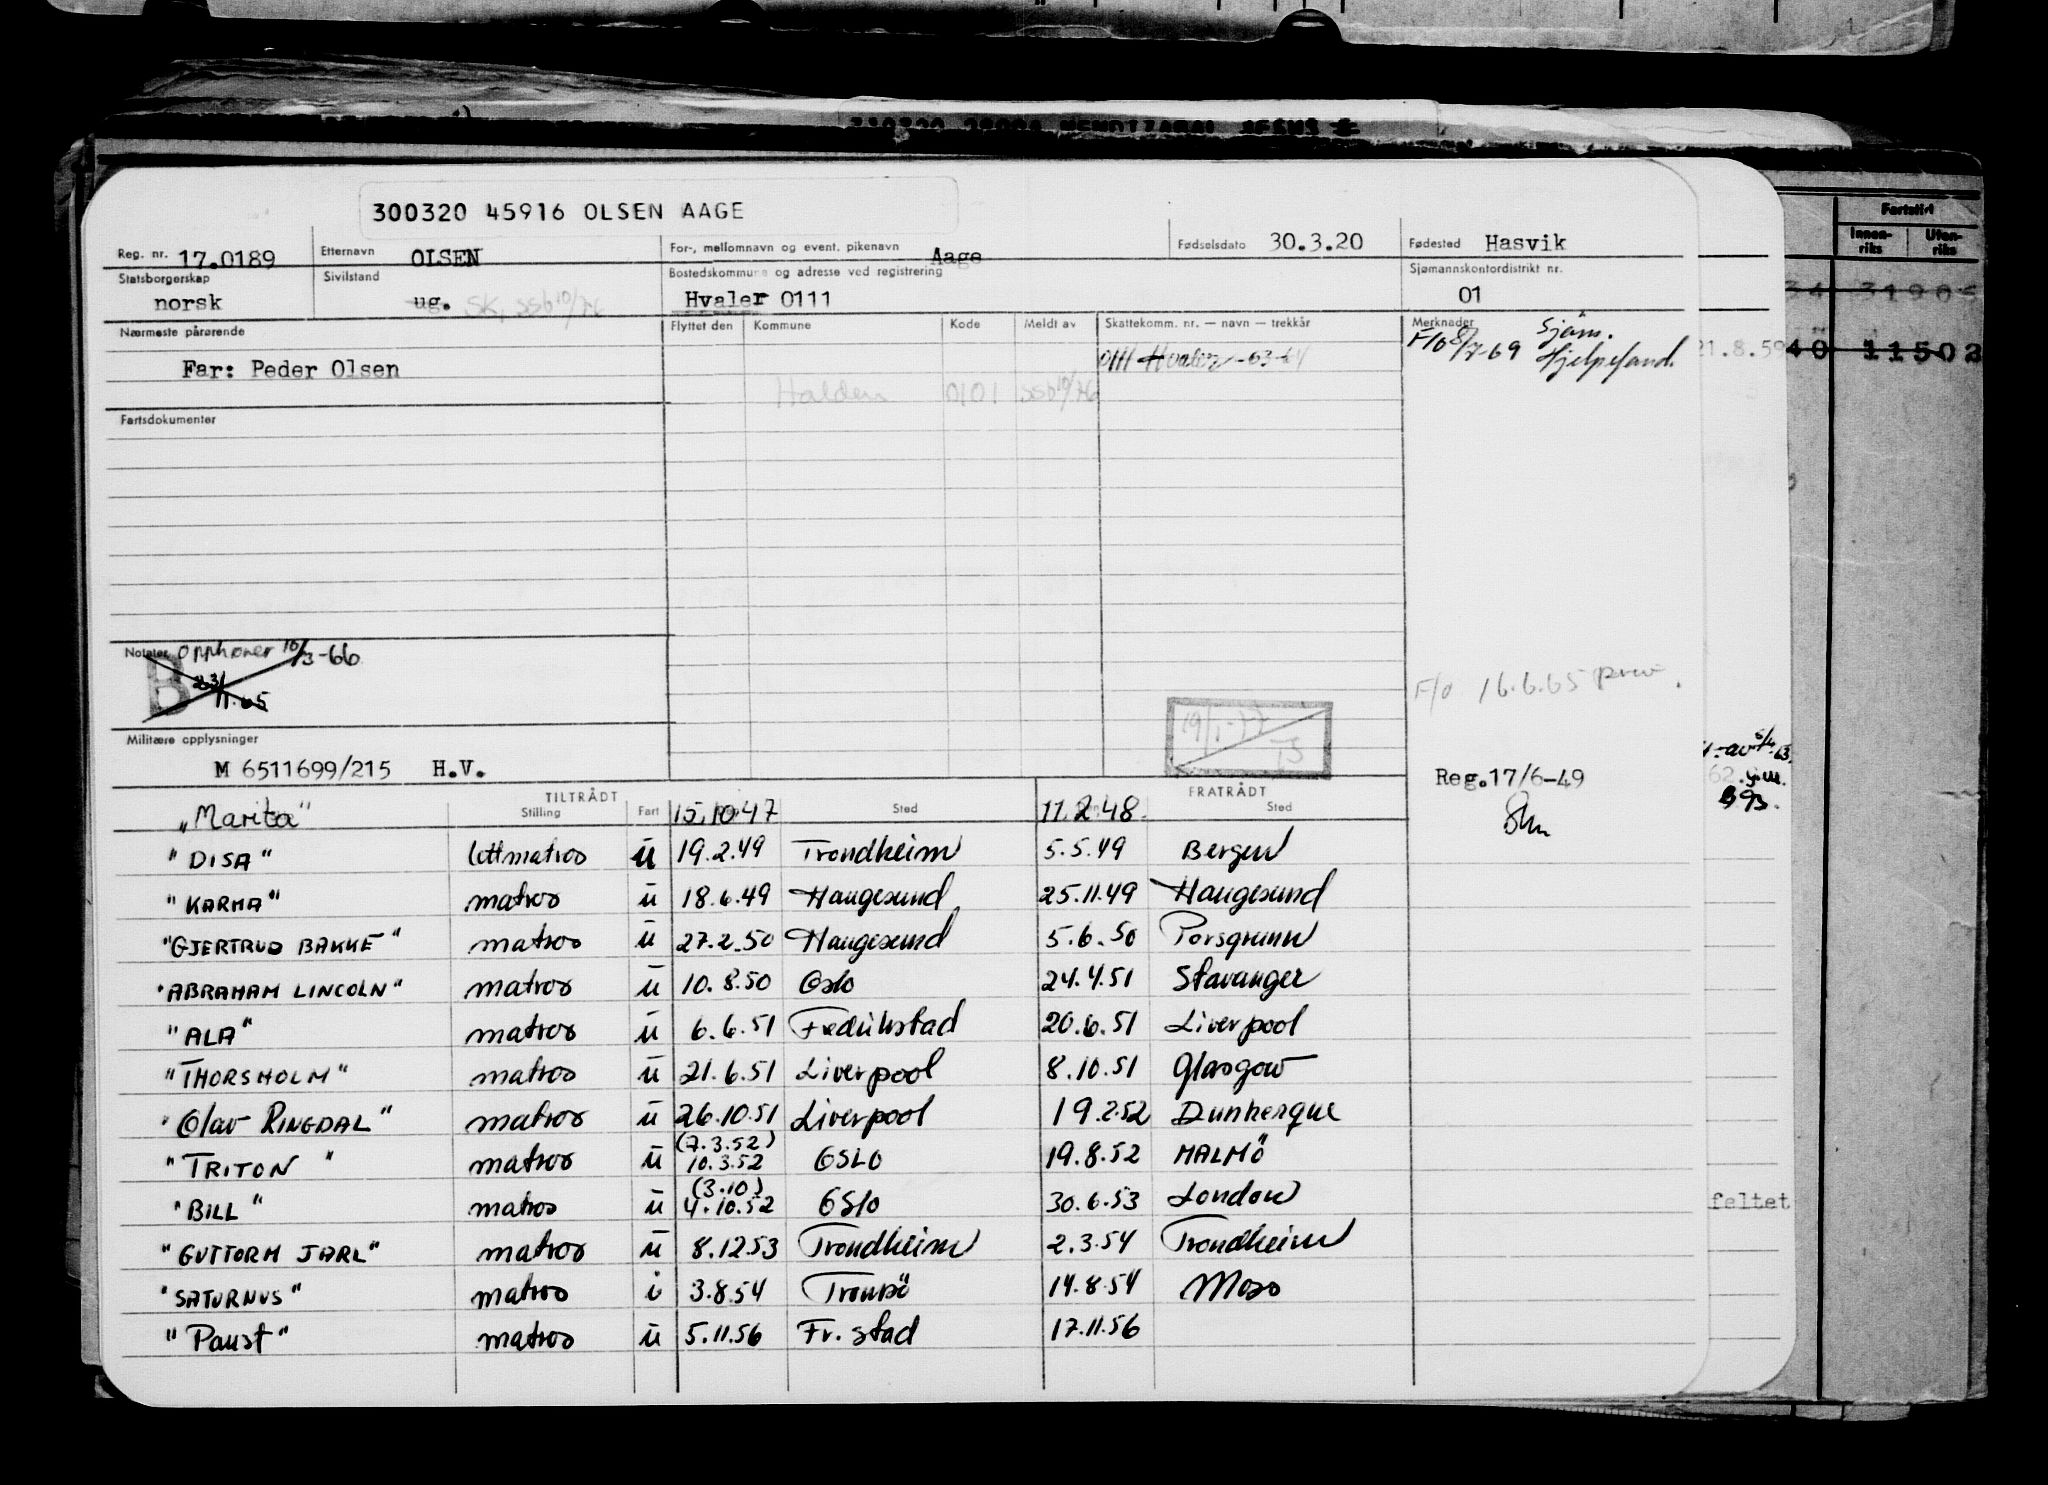 300320 45916 OLSEN AAGE
Reg. nr. 17.0189 Etternavn OLSEN For-, mellomnavn og event. pikenavn Aage Fødselsdato 30.3.20 Fødested Hasvik
Statsborgerskap norsk Sivilstand ug. Bostedskommune og adresse ved registrering Hvaler 0111 Sjømannskontordistrikt nr. 01
Nærmeste pårørende Flyttet den Kommune Kode Meldt av Skattekomm. nr. — navn — trekkår Merknader
Far: Peder Olsen
0111 Hvaler -63-64
F/o 8/7-69 Sjøm.
Hjelpefond.
Halden 0101 SSb 10/76
Fartsdokumenter
Fartstid
Innen-riks Uten-riks
34 3190
21.8.59 40 11502
Notater Opphører 10/3-66
B 23/11.65
F/o 16.6.65
19/1-77
Militære opplysninger
M 6511699/215 H.V.
Reg.17/6-49
TILTRÅDT FRATRÅDT
Stilling Fart Sted Sted
"Marita" 15.10.47 11.2.48.
"DISA" lettmatros u 19.2.49 Trondheim 5.5.49 Bergen
"KARMA" matros u 18.6.49 Haugesund 25.11.49 Haugesund
"GJERTRUD BAKKE" matros u 27.2.50 Haugesund 5.6.50 Porsgrunn
"ABRAHAM LINCOLN" matros u 10.8.50 Oslo 24.4.51 Stavanger
"ALA" matros u 6.6.51 Fredrikstad 20.6.51 Liverpool
"THORSHOLM" matros u 21.6.51 Liverpool 8.10.51 Glasgow
"Olav RINGDAL" matros u 26.10.51 Liverpool 19.2.52 Dunkerque
"TRITON" matros u (7.3.52) 10.3.52 OSLO 19.8.52 MALMÖ
"BILL" matros u (3.10) 4.10.52 Oslo 30.6.53 London
"GUTTORM JARL" matros u 8.12.53 Trondheim 2.3.54 Trondheim
"SATURNUS" matros i 3.8.54 Tromsö 14.8.54 Moss
"Paust" matros u 5.11.56 Fr.stad 17.11.56
feltet